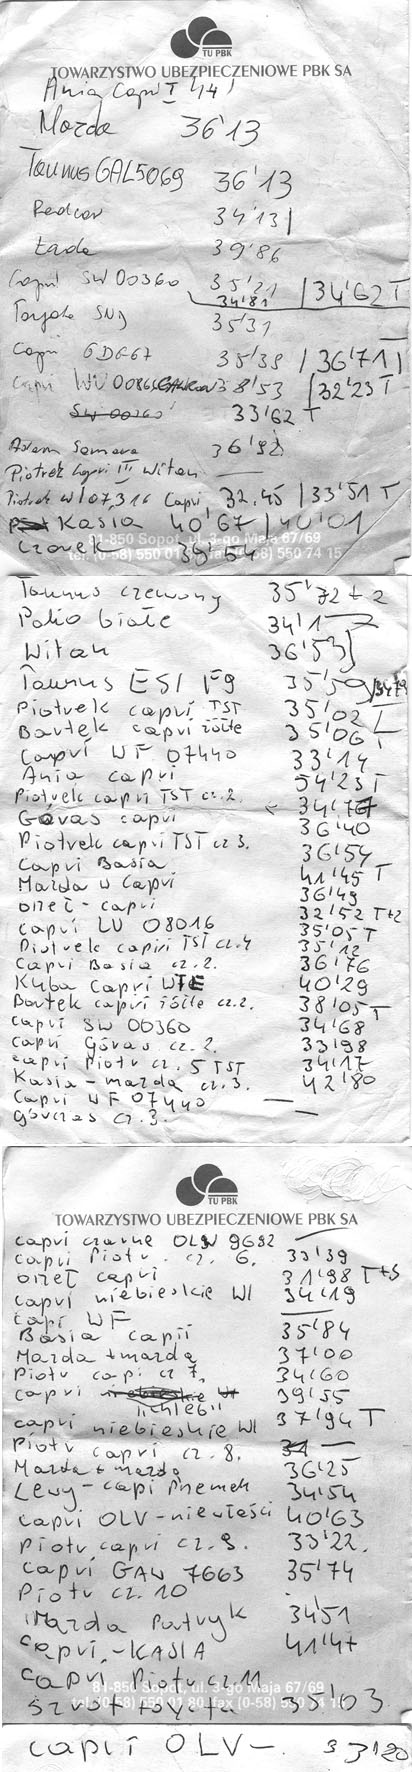 TU PBK
TOWARZYSTWO UBEZPIECZENIOWE PBK SA
Ania Capri I
Mazda 36'13
Taunus GAL5069 36'13
34'13
Łada 39'86
Capri SW 00360 35'21 / 34'62 T
34'81
35'31
Capri 35'39 / 36'71
Capri 38'53 / 32'23 T
SW 00360 33'62 T
Adam Samara
Piotrek Capri III Witan —
Piotrek Capri 32.45 / 33'51 T
Kasia 40'67 / 40'01
81-850 Sopot, ul. 3-go Maja 67/69
tel. (0-58) 550 01 80, fax (0-58) 550 74 15
Taunus czerwony 35'72 + 2
Polo białe
Witan 36'53
Taunus ESI 35'50
Piotrek capri TST 35'02
Bartek capri żółte 35'06 T
Capri WF 07440 33'14
Ania capri 54'23 T
Piotrek capri TST cz.2.
Góras capri 36'40
Piotrek capri TST cz 3. 36'54
Capri Basia 41'45 T
Mazda w Capri 36'49
orzeł - capri 32'52 T+2
capri LU 08016 35'05 T
Piotrek capri TST cz.4 35'12
Capri Basia cz.2. 36'76
Kuba Capri WTE 40'29
Bartek capri żółte cz.2. 38'05 T
capri SW 00360 34'68
capri Góras cz.2. 33'98
capri Piotr cz. 5 TST 34'17
Kasia - mazda cz.3. 42'80
Capri WF 07440 —
góras cz.3. —
TU PBK
TOWARZYSTWO UBEZPIECZENIOWE PBK SA
capri czarne OLN 9682 —
capri Piotr. cz. 6. 33'39
orzeł capri 31'98 T+5
capri niebieskie WI 34'19
capi WF —
Basia capri 35'84
Mazda + mazda 37'00
Piotr capi cz 7. 34'60
capri niebieskie WI 39'55
"chleb"
capri niebieskie WI 37'94 T
Piotr capri cz.8. 34 —
Mazda + mazda 36'25
Lewy - capi Przemek 34'54
capri OLV - niewieści 40'63
Piotr capri cz.9. 33'22.
capri GAW 7663 35'74
Piotr cz.10
Mazda Patryk 34'51
capri - KASIA 41'47
capri Piotr cz 11
81-850 Sopot, ul. 3-go Maja 67/69
tel. (0-58) 550 01 80, fax (0-58) 550 74 15
Szrot toyota 35'03
capri OLV - . 33'20